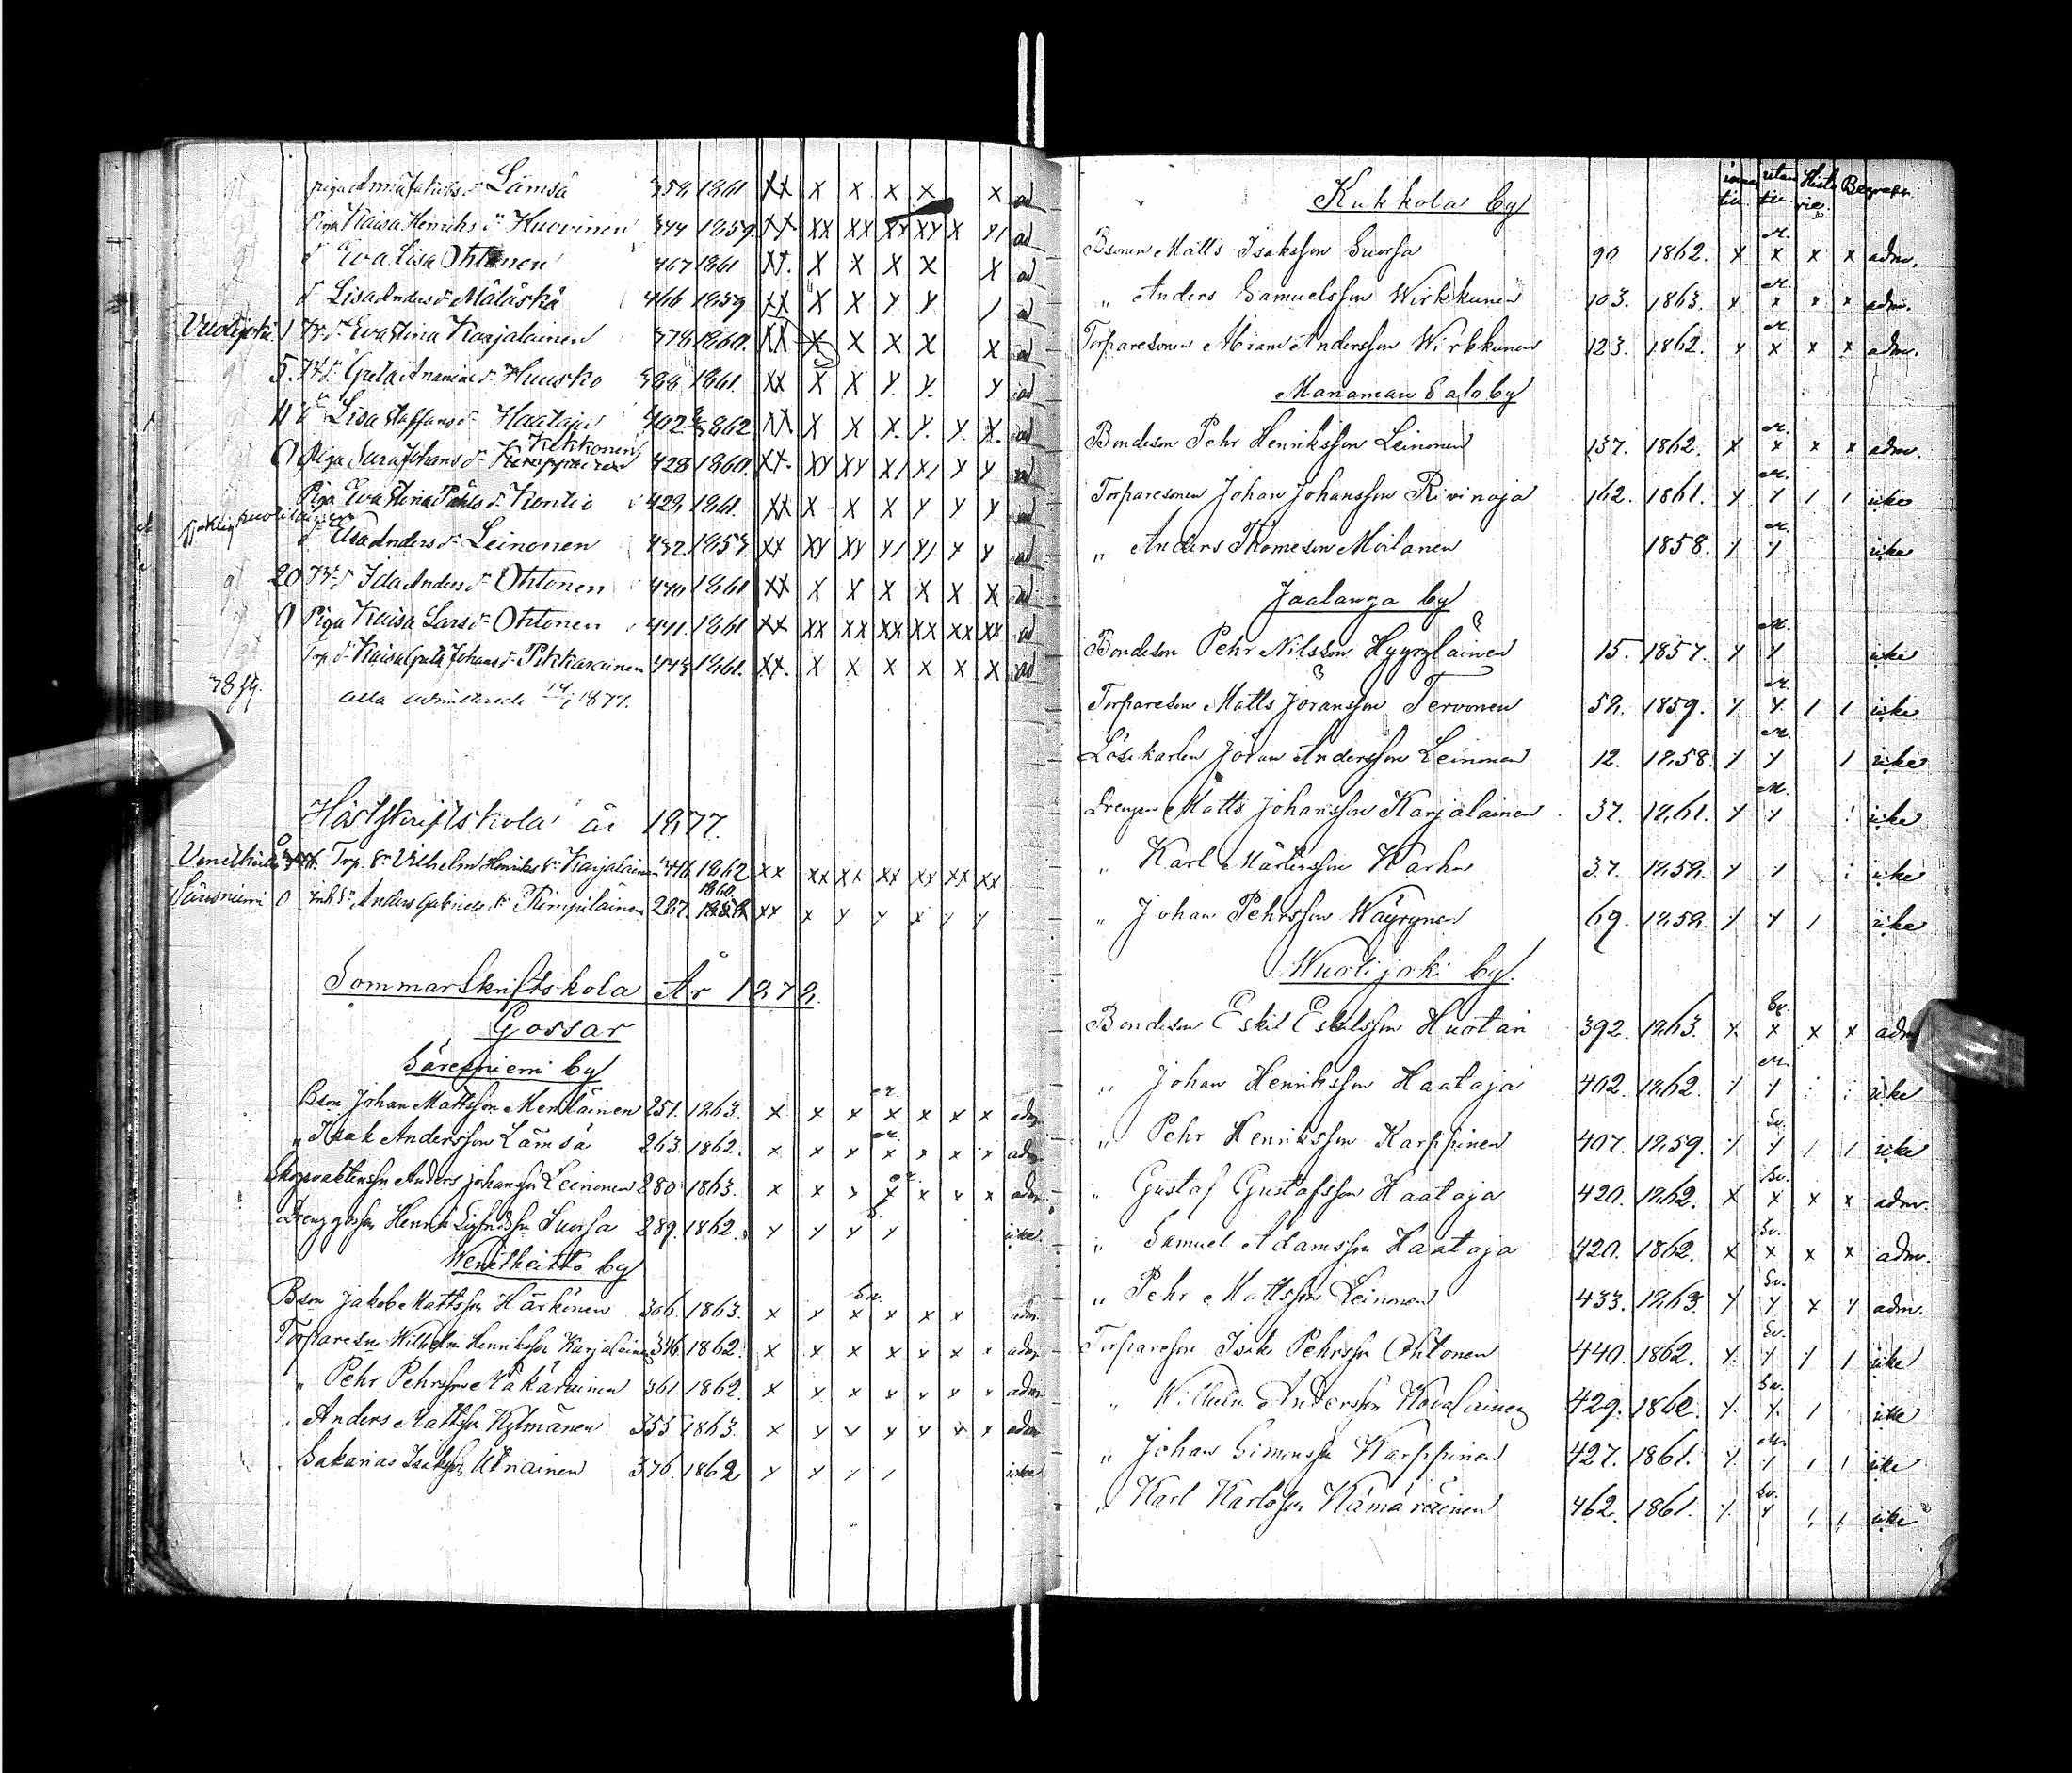 piga Anna Jakobs dr Lämsä 358 1861 XX X X X X X ad
Piga Kaisa Henriks dr Huovinen 344 1859. XX XX XX XX XX X ad
dr Eva Lisa Ohtonen 467 1861 XX. X X X X X ad
dr Lisa Anders dr Mäläskä 466 1859 XX X X X X ad
Vuolijoki 1 Eva Stina Karjalainen 378 1860. XX X X X X X ad
5. Greta Ananias dr Huusko 388 1861. XX X X X. X. X ad
11 dr Lisa Staffans dr Haataja 402 1862 XX. X X X. X. X. X. ad
Kekkonen
0 Piga Sara Johans dr 428 1860. XX. XX XX ad
Piga Eva Stina Påhls dr Kontio 429 1861. XX X X X X X X ad
dr Elsa Anders dr Leinonen 432 1857. XX XX XX ad
20 Ida Anders dr Ohtonen 440 1861 XX X X X X X X ad
0 Piga Kaisa Lars dr Ohtonen 441. 1861 XX XX XX XX XX XX XX ad
Torp. dr Kaisa Greta Johans dr Pikkarainen 443 1861. XX. X X X X X X ad
alla admitterade 1877.
Höstskriftskola år 1877.
Venetheitto Torp. sn Vilhelm Henriks sn Karjalainen 346 1862 XX XX XX XX XX XX XX
1860.
Säresniemi 0 Inh. sn Anders Gabriels sn 287. 1858 XX X X X X X X
Sommar Skriftskola År 1878.
Gossar
Säresniemi by
Bson Johan Mattsson Menläinen 251. 1863. x x x x x x x adm.
" Isak Andersson Lämsä 263. 1862. x x x x x x x adm.
Skogvaktensson Anders Johansson Leinonen 280 1863. x x x x x x x adm.
Dreng gossen Henrik Suorsa 289. 1862. icke
Venetheitto by
Bson Jakob Mattsson Härkönen 306. 1863. x x x x x x adm.
Torpareson Wilhelm Henriksson Karjalainen 346 1862. x x x x x x adm.
" Pehr Pehrsson Mäkäräinen 361. 1862. x x x x x x x adm.
" Anders Mattsson Kylmänen 355 1863. x x x x x x x adm.
" Sakarias Isaksson Utriainen 376. 1862 icke
Kukkola by innan till. utan till. Histo rie. Begrepn.
Bsonen Matts Isaksson Suorsa 90 1862. x x x x adm.
" Anders Samuelsson Wirkkunen 103. 1863. x x x x adm.
Torparesonen Abram Andersson Wirkkunen 123. 1862. x x x x adm.
Manamansalo by
Bondeson Pehr Henriksson Leinonen 137. 1862. x x x x adm.
Torparesonen Johan Johansson Rivinoja 162. 1861. icke
" Anders Thomeson Moilanen 1858. icke
Jaalanga by
Bondeson Pehr Nilsson Hyyryläinen 15. 1857. icke
Torpareson Matts Joransson Tervonen 58. 1859. icke
Lösekarlen Joran Andersson Leinonen 12. 1858. icke
Drengen Matts Johansson Karjalainen 37. 1861. icke
" Karl Mårtensson Karhu 37. 1858. icke
" Johan Pehrsson Wäyrynen 69. 1858. icke
Wuolijoki by.
Bondeson Eskil Eskilsson Huotari 392. 1863. x x x x adm
" Johan Henriksson Haataja 402. 1862. icke
" Pehr Henriksson Karppinen 407. 1859. icke
" Gustaf Gustafsson Haataja 420. 1862. x x x x adm.
" Samuel Adamsson Haataja 420. 1862. x x x x adm.
" Pehr Mattsson Leinonen 433. 1863. x x x x adm.
Torpareson Isak Pehrsson Ohtonen 440. 1862. icke
" Wilhelm Andersson Kovalainen 429. 1862. icke
" Johan Simonsson Karppinen 427. 1861. icke
" Karl Karlsson Kämäräinen 462. 1861. icke